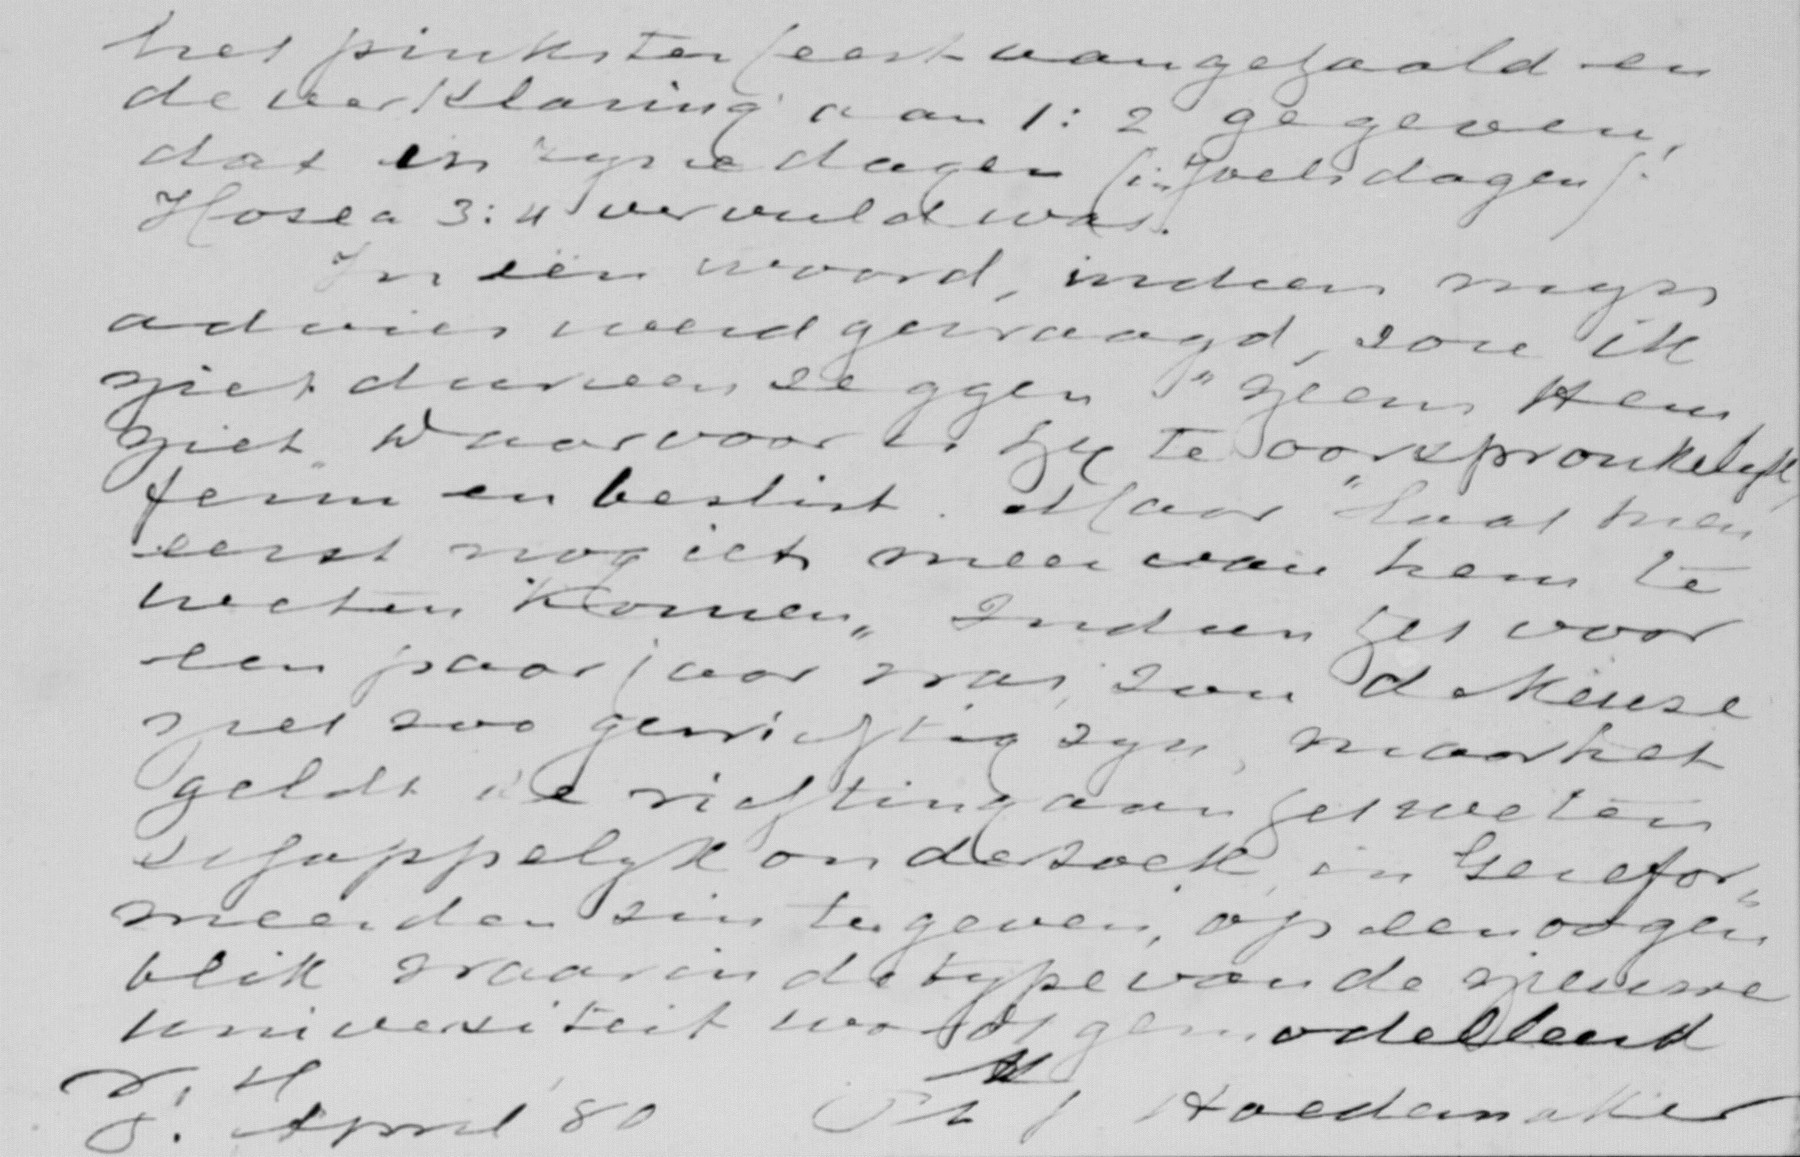 het pinksterfeest aangehaald en
de verklaring aan 1:2 gegeven,
dat in zyne dagen (in Joels dagen)
Hosea 3:4 vervuld was.
In één woord, indien myn
advies werd gevraagd, zou ik
niet durven zeggen "neem Hem
niet" Waarvoor is hy te oorspronkelyk,
ferm en beslist. Maar "laat men
eerst nog iets meer van hem te
weten komen" Indien het voor
een paar jaar was, zou de Keuze
niet zoo gewichtig zyn, maar het
geldt de richting aan het weten
schappelyk onderzoek in Gerefor-
meerden zin te geven, op een oogen
blik waarin de type van de nieuwe
universiteit wordt gemodelleerd
April 80 Ph J Hoedemaker